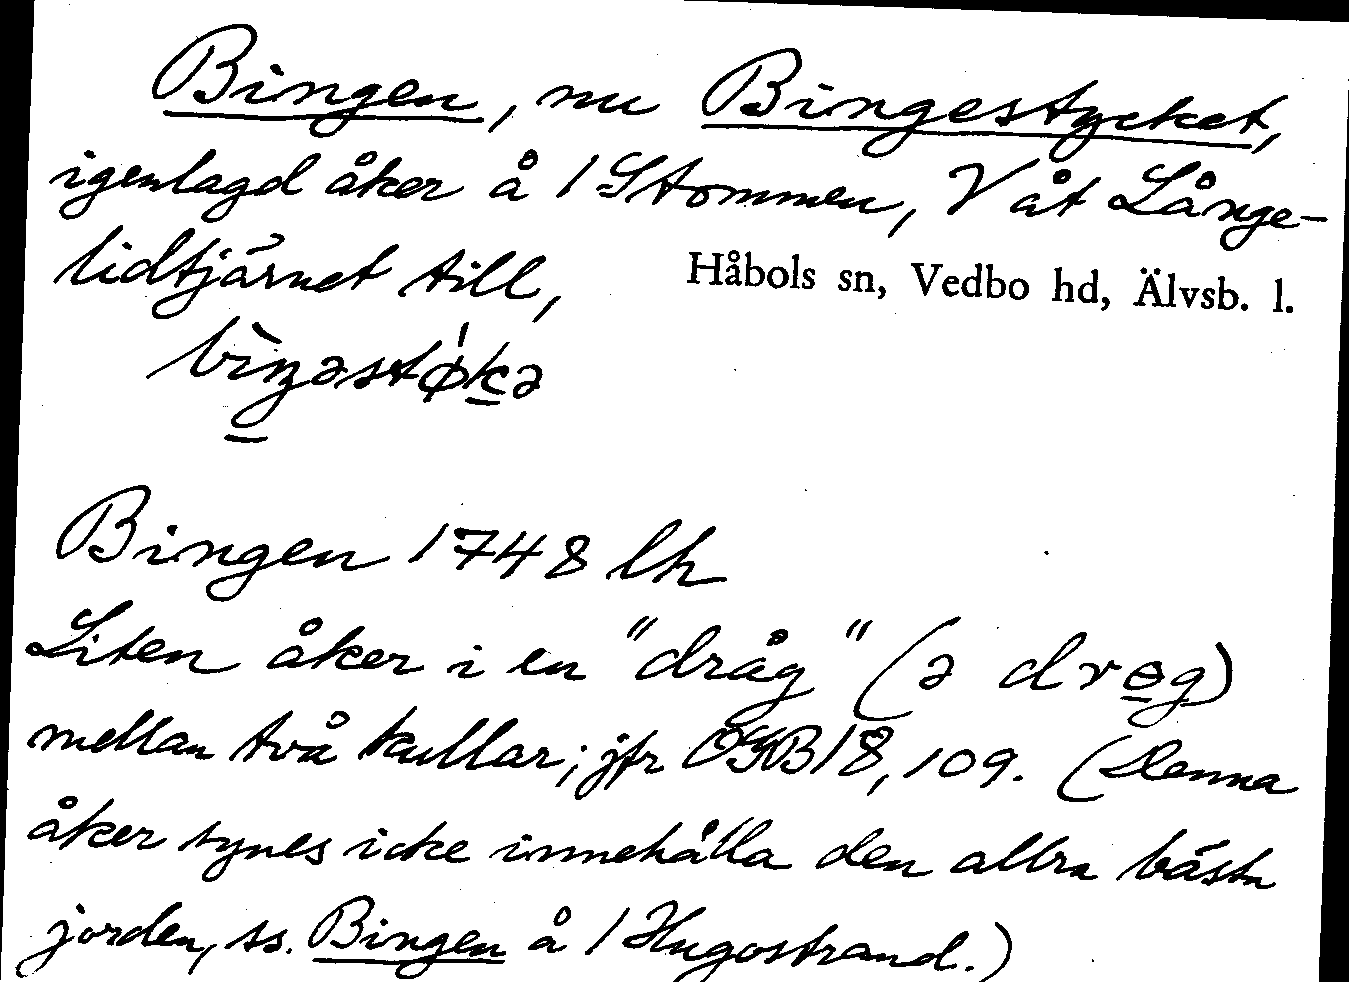 Bingen, nu Bingestycket,
igenlagd åker å 1 Stommen, V åt Långe-
lidtjärnet till,
Håbols sn, Vedbo hd, Älvsb. l.
Bingen 1748 lh
Liten åker i en "dråg" (ə drɵg)
mellan två kullar; jfr OGB 18, 109. (Denna
åker synes icke innehålla den allra bästa
jorden, ss. Bingen å 1 Hugostrand.)